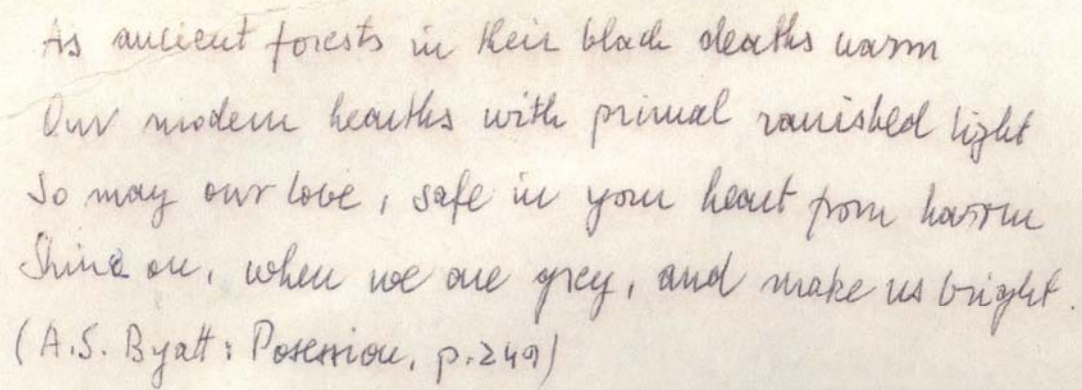 As ancient forests in their black deaths warm
Our modern hearths with primal vanished light
So may our love, safe in your heart from harm
Shine on, when we are grey, and make us bright.
(A.S. Byatt: Posession, p.249)